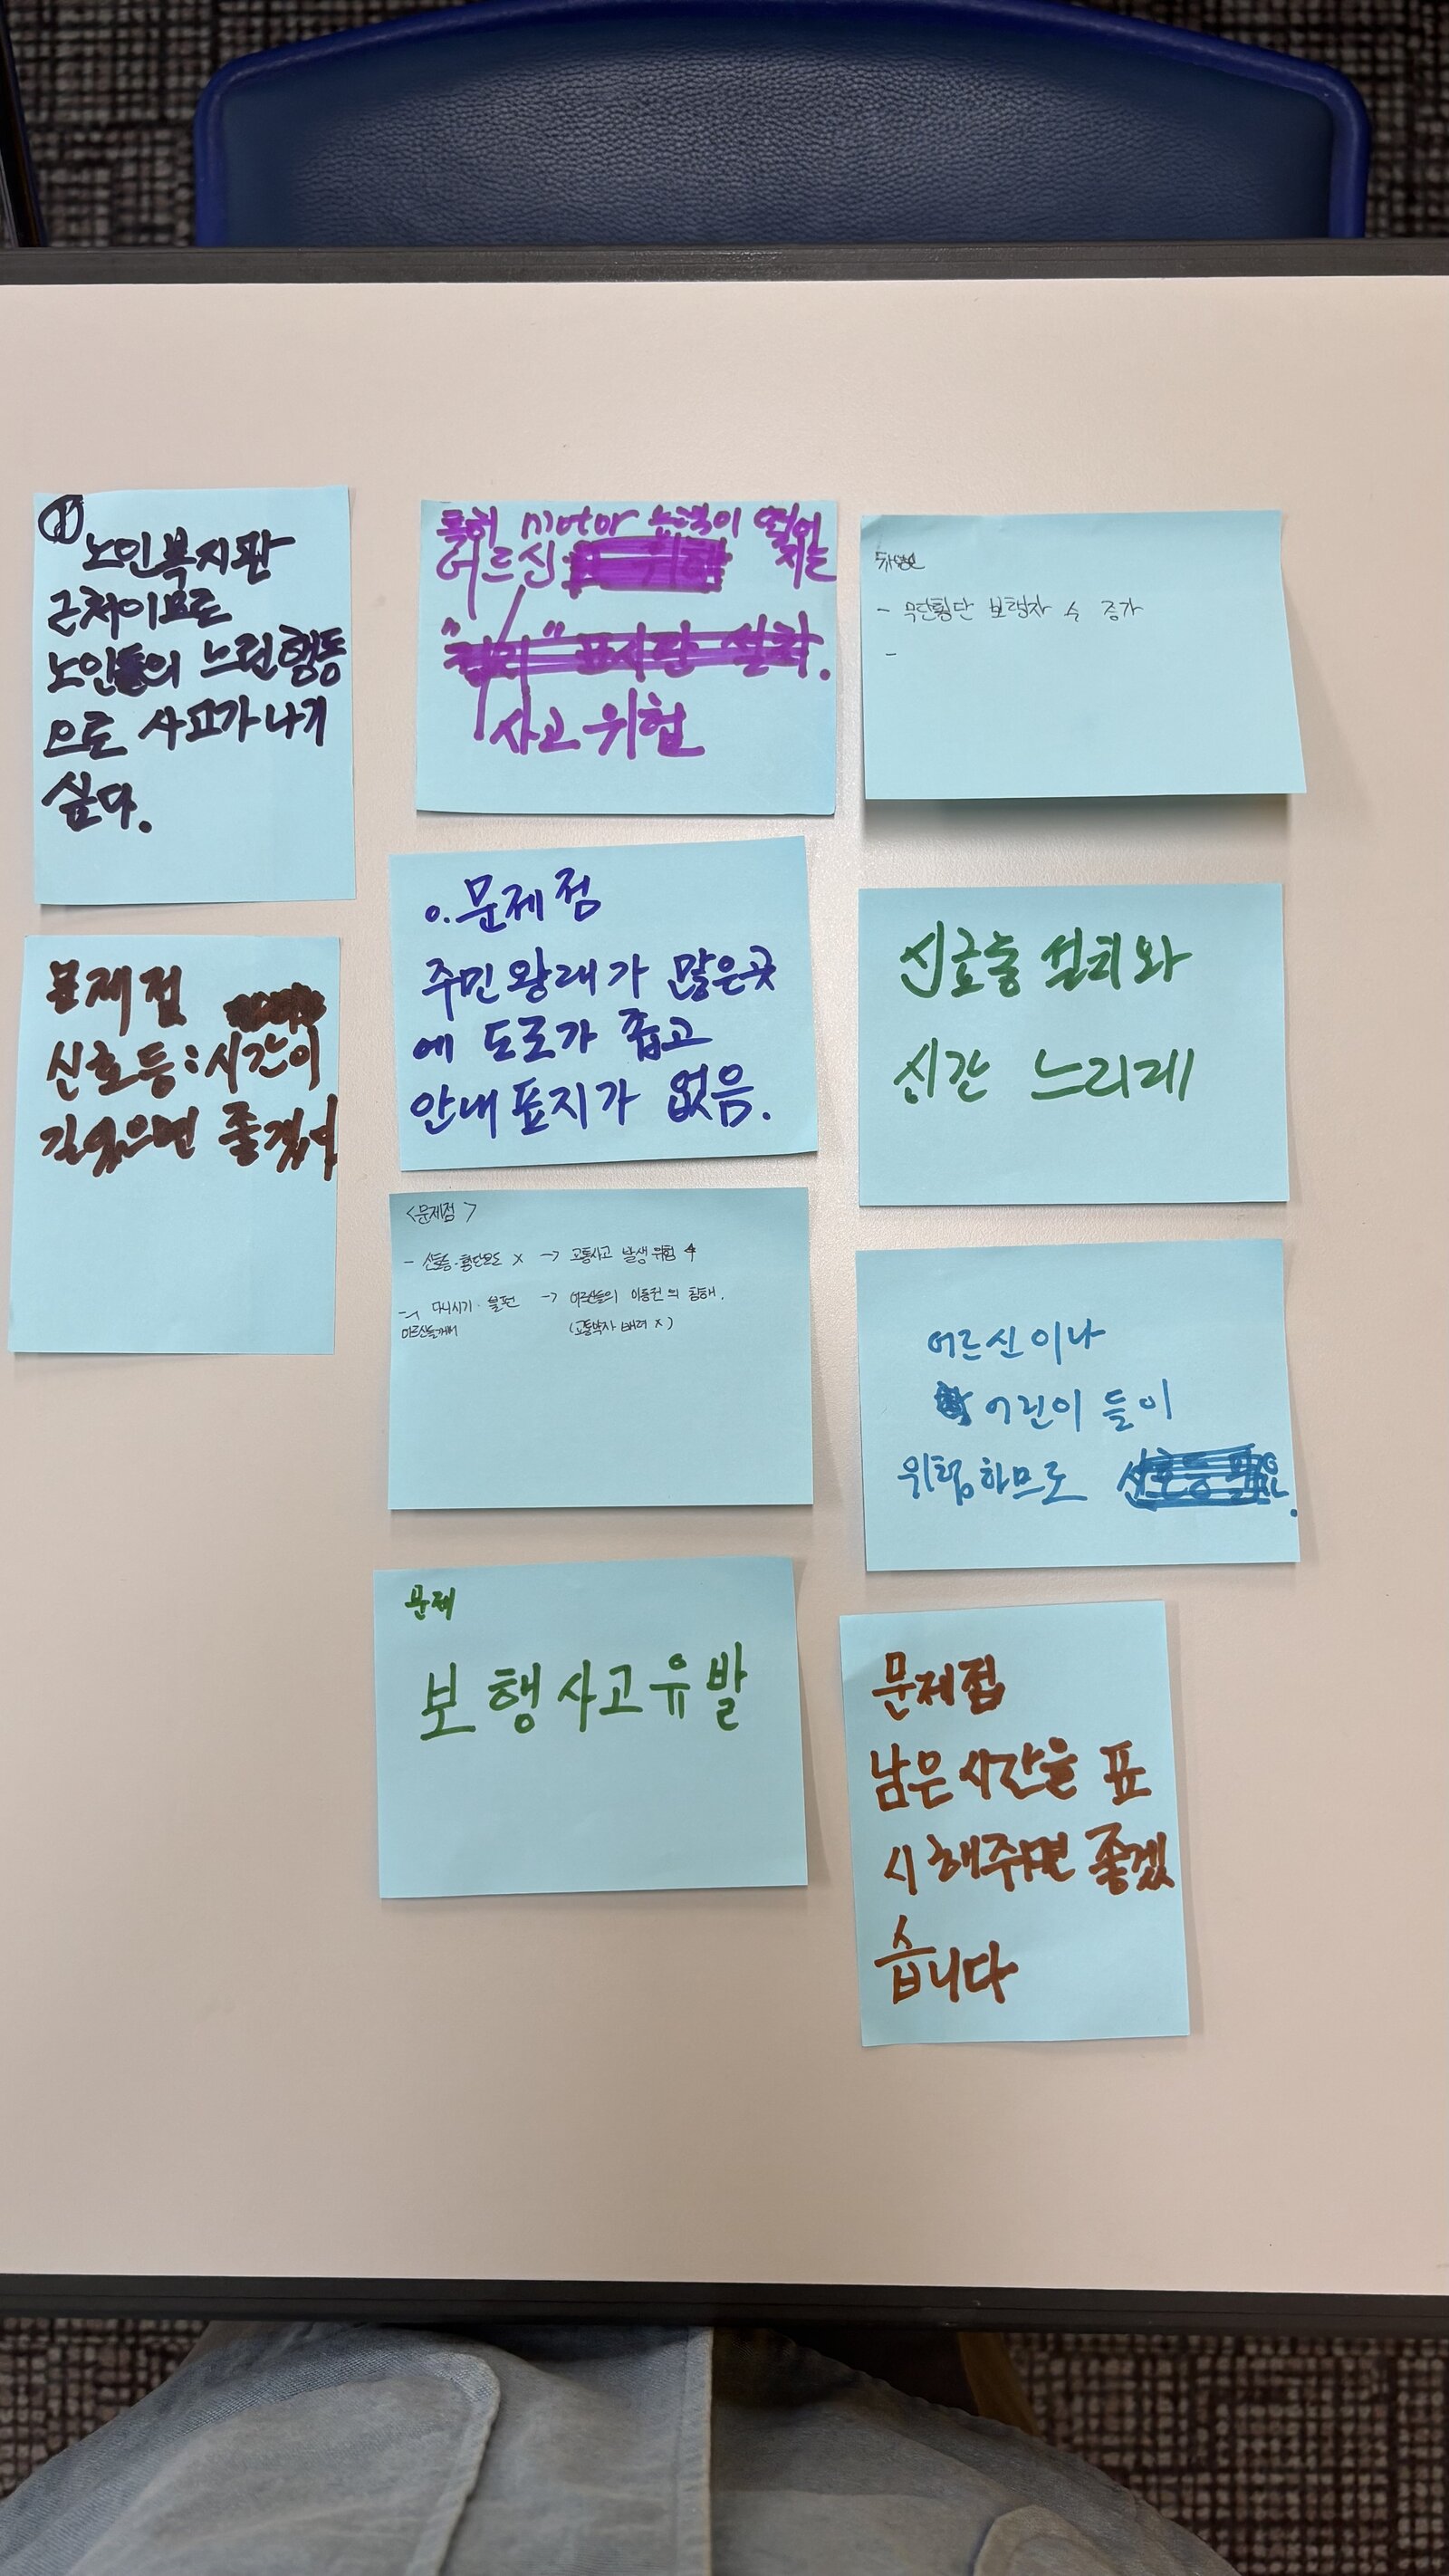 ①
노인복지관
근처이므로
노인들의 느린행동
으로 사고가 나기
싶다.
문제점
신호등:시간이
길었으면 좋겠어
특히 motor 능력이 떨어
어르신 지는
사고 위험
o.문제점
주민왕래가 많은곳
에 도로가 좁고
안내표지가 없음.
<문제점>
- 신호등·횡단보도 x -> 교통사고 발생 위험 ↑
- 다니시기 불편 -> 어르신들의 이동권의 침해.
어르신들께서 (교통약자 배려 x)
문제
보행사고유발
- 무단횡단 보행자 수 증가
-
신호등 설치와
시간 느리게
어르신이나
어린이 들이
위험하므로
문제점
남은시간을 표
시해주면 좋겠
습니다